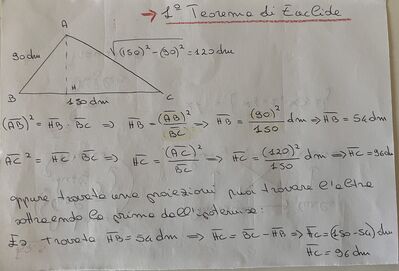 → 1º Teorema di Euclide
A
90 dm
√(150)² - (90)² = 120 dm
H
B
150 dm
C
(AB)² = HB · BC ⇒ HB = (AB)²/BC ⇒ HB = (90)²/150 dm ⇒ HB = 54 dm
AC² = HC · BC ⇒ HC = (AC)²/BC ⇒ HC = (120)²/150 dm ⇒ HC = 96 dm
oppure trovata una proiezioni puoi trovare l'altra
sottraendo la prima dall'ipotenusa:
Es Trovata HB = 54 dm ⇒ HC = BC - HB ⇒ HC = (150 - 54) dm
HC = 96 dm